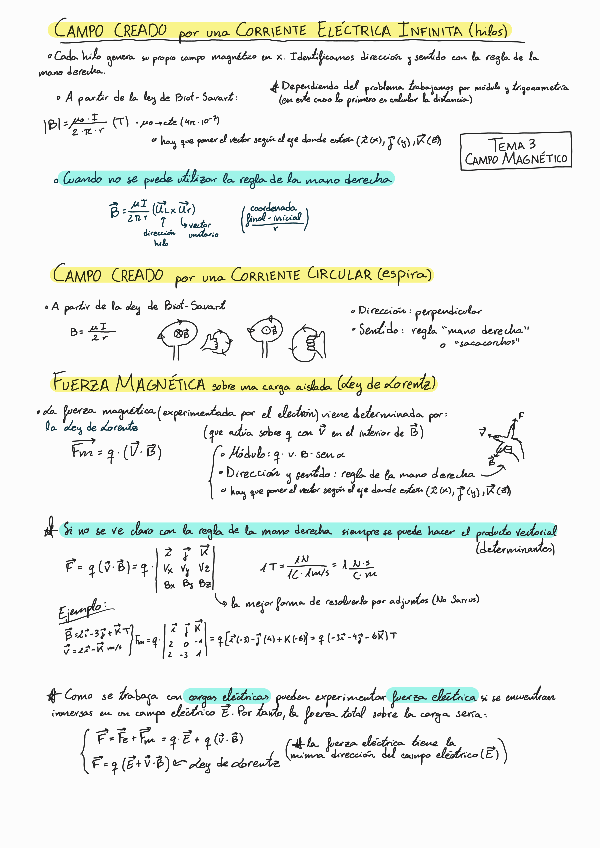 CAMPO CREADO por una CORRIENTE ELÉCTRICA INFINITA (hilos)
• Cada hilo genera su propio campo magnético en x. Identificamos dirección y sentido con la regla de la
mano derecha.
* Dependiendo del problema trabajamos por módulo y trigonometría
(en este caso lo primero es calcular la distancia)
• A partir de la ley de Biot-Savart:
|B| = μ₀·I / 2·π·r (T) · μ₀→cte (4π·10⁻⁷)
• hay que poner el vector según el eje donde estén (i⃗(x), j⃗(y), K⃗(z))
TEMA 3
CAMPO MAGNÉTICO
• Cuando no se puede utilizar la regla de la mano derecha
B⃗ = μI / 2πr (u⃗L x u⃗r)
(coordenada final - inicial / r)
dirección hilo
vector unitario
CAMPO CREADO por una CORRIENTE CIRCULAR (espira)
• A partir de la Ley de Biot-Savart
B = μI / 2r
B
B
• Dirección: perpendicular
• Sentido: regla "mano derecha"
o "sacacorchos"
FUERZA MAGNÉTICA sobre una carga aislada (Ley de Lorentz)
• La fuerza magnética (experimentada por el electrón) viene determinada por:
la Ley de Lorentz
(que actúa sobre q con V⃗ en el interior de B⃗)
F⃗m = q·(V⃗·B⃗)
• Módulo: q·v·B·senα
• Dirección y sentido: regla de la mano derecha
• hay que poner el vector según el eje donde estén (i⃗(x), j⃗(y), K⃗(z))
F
V⃗
B⃗
* Si no se ve claro con la regla de la mano derecha siempre se puede hacer el producto vectorial
(determinantes)
F⃗ = q(v⃗·B⃗) = q· | i⃗ j⃗ K⃗ |
| Vx Vy Vz |
| Bx By Bz |
1T = 1N / 1C·1m/s = 1 N·s / C·m
la mejor forma de resolverlo por adjuntos (No Sarrus)
Ejemplo:
B⃗ = 2i⃗ - 3j⃗ + K⃗ T
V⃗ = 2i⃗ - K⃗ m/s
Fm = q· | i⃗ j⃗ K⃗ |
| 2 0 -1 |
| 2 -3 1 |
= q[i⃗(-3) - j⃗(4) + K(-6)] = q(-3i⃗ - 4j⃗ - 6K⃗) T
* Como se trabaja con cargas eléctricas pueden experimentar fuerza eléctrica si se encuentran
inmersas en un campo eléctrico E⃗. Por tanto, la fuerza total sobre la carga sería:
F⃗ = F⃗e + F⃗m = q·E⃗ + q(v⃗·B⃗)
F⃗ = q(E⃗ + V⃗·B⃗) ← Ley de Lorentz
(* la fuerza eléctrica tiene la
misma dirección del campo eléctrico (E⃗))